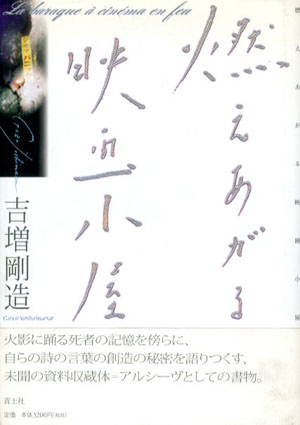 La baraque à cinéma en feu
燃えあがる
映画小屋
吉増剛造
火影に踊る死者の記憶を傍らに、
自らの詩の言葉の創造の秘密を語りつくす、
未聞の資料収蔵体=アルシーヴとしての書物。
青土社
定価 本体3200円(税別)